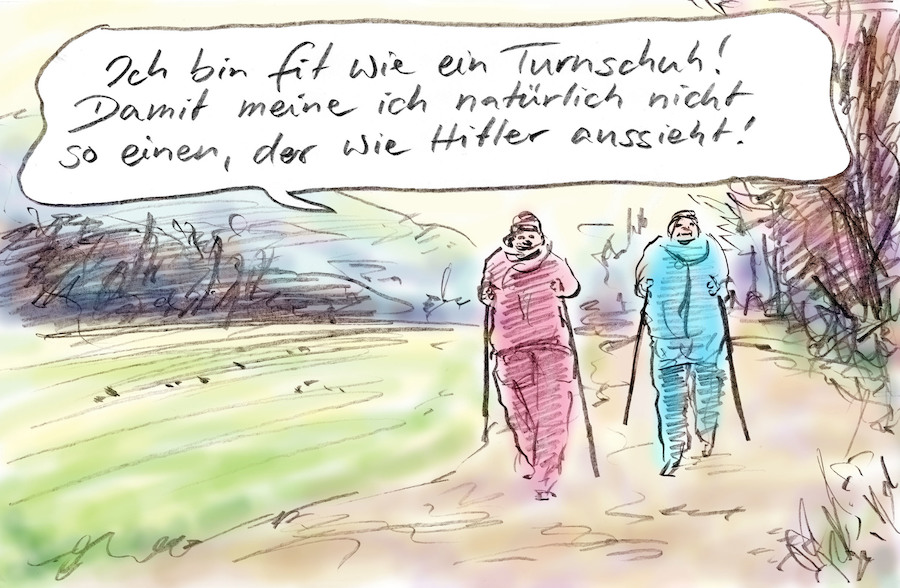 Ich bin fit wie ein Turnschuh!
Damit meine ich natürlich nicht
so einen, der wie Hitler aussieht!